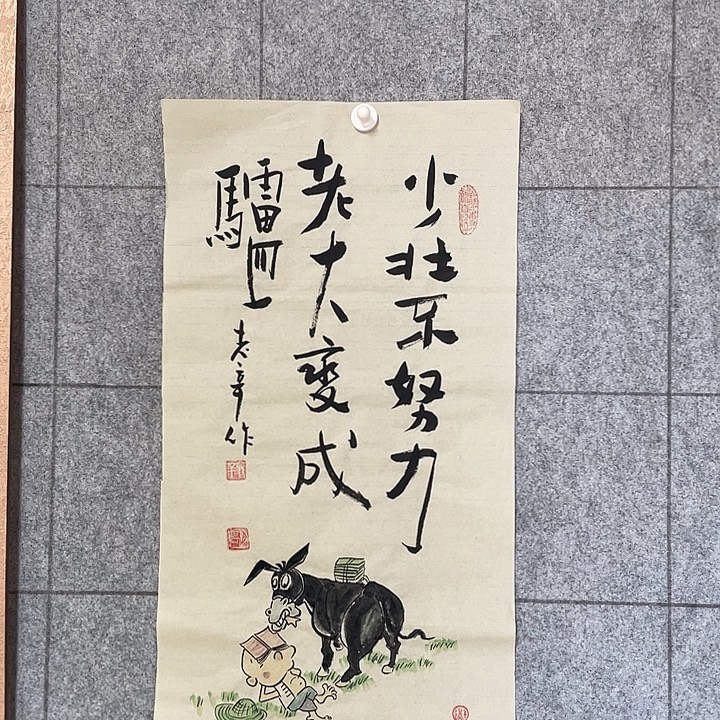 少壮不努力
老大变成
驢
作